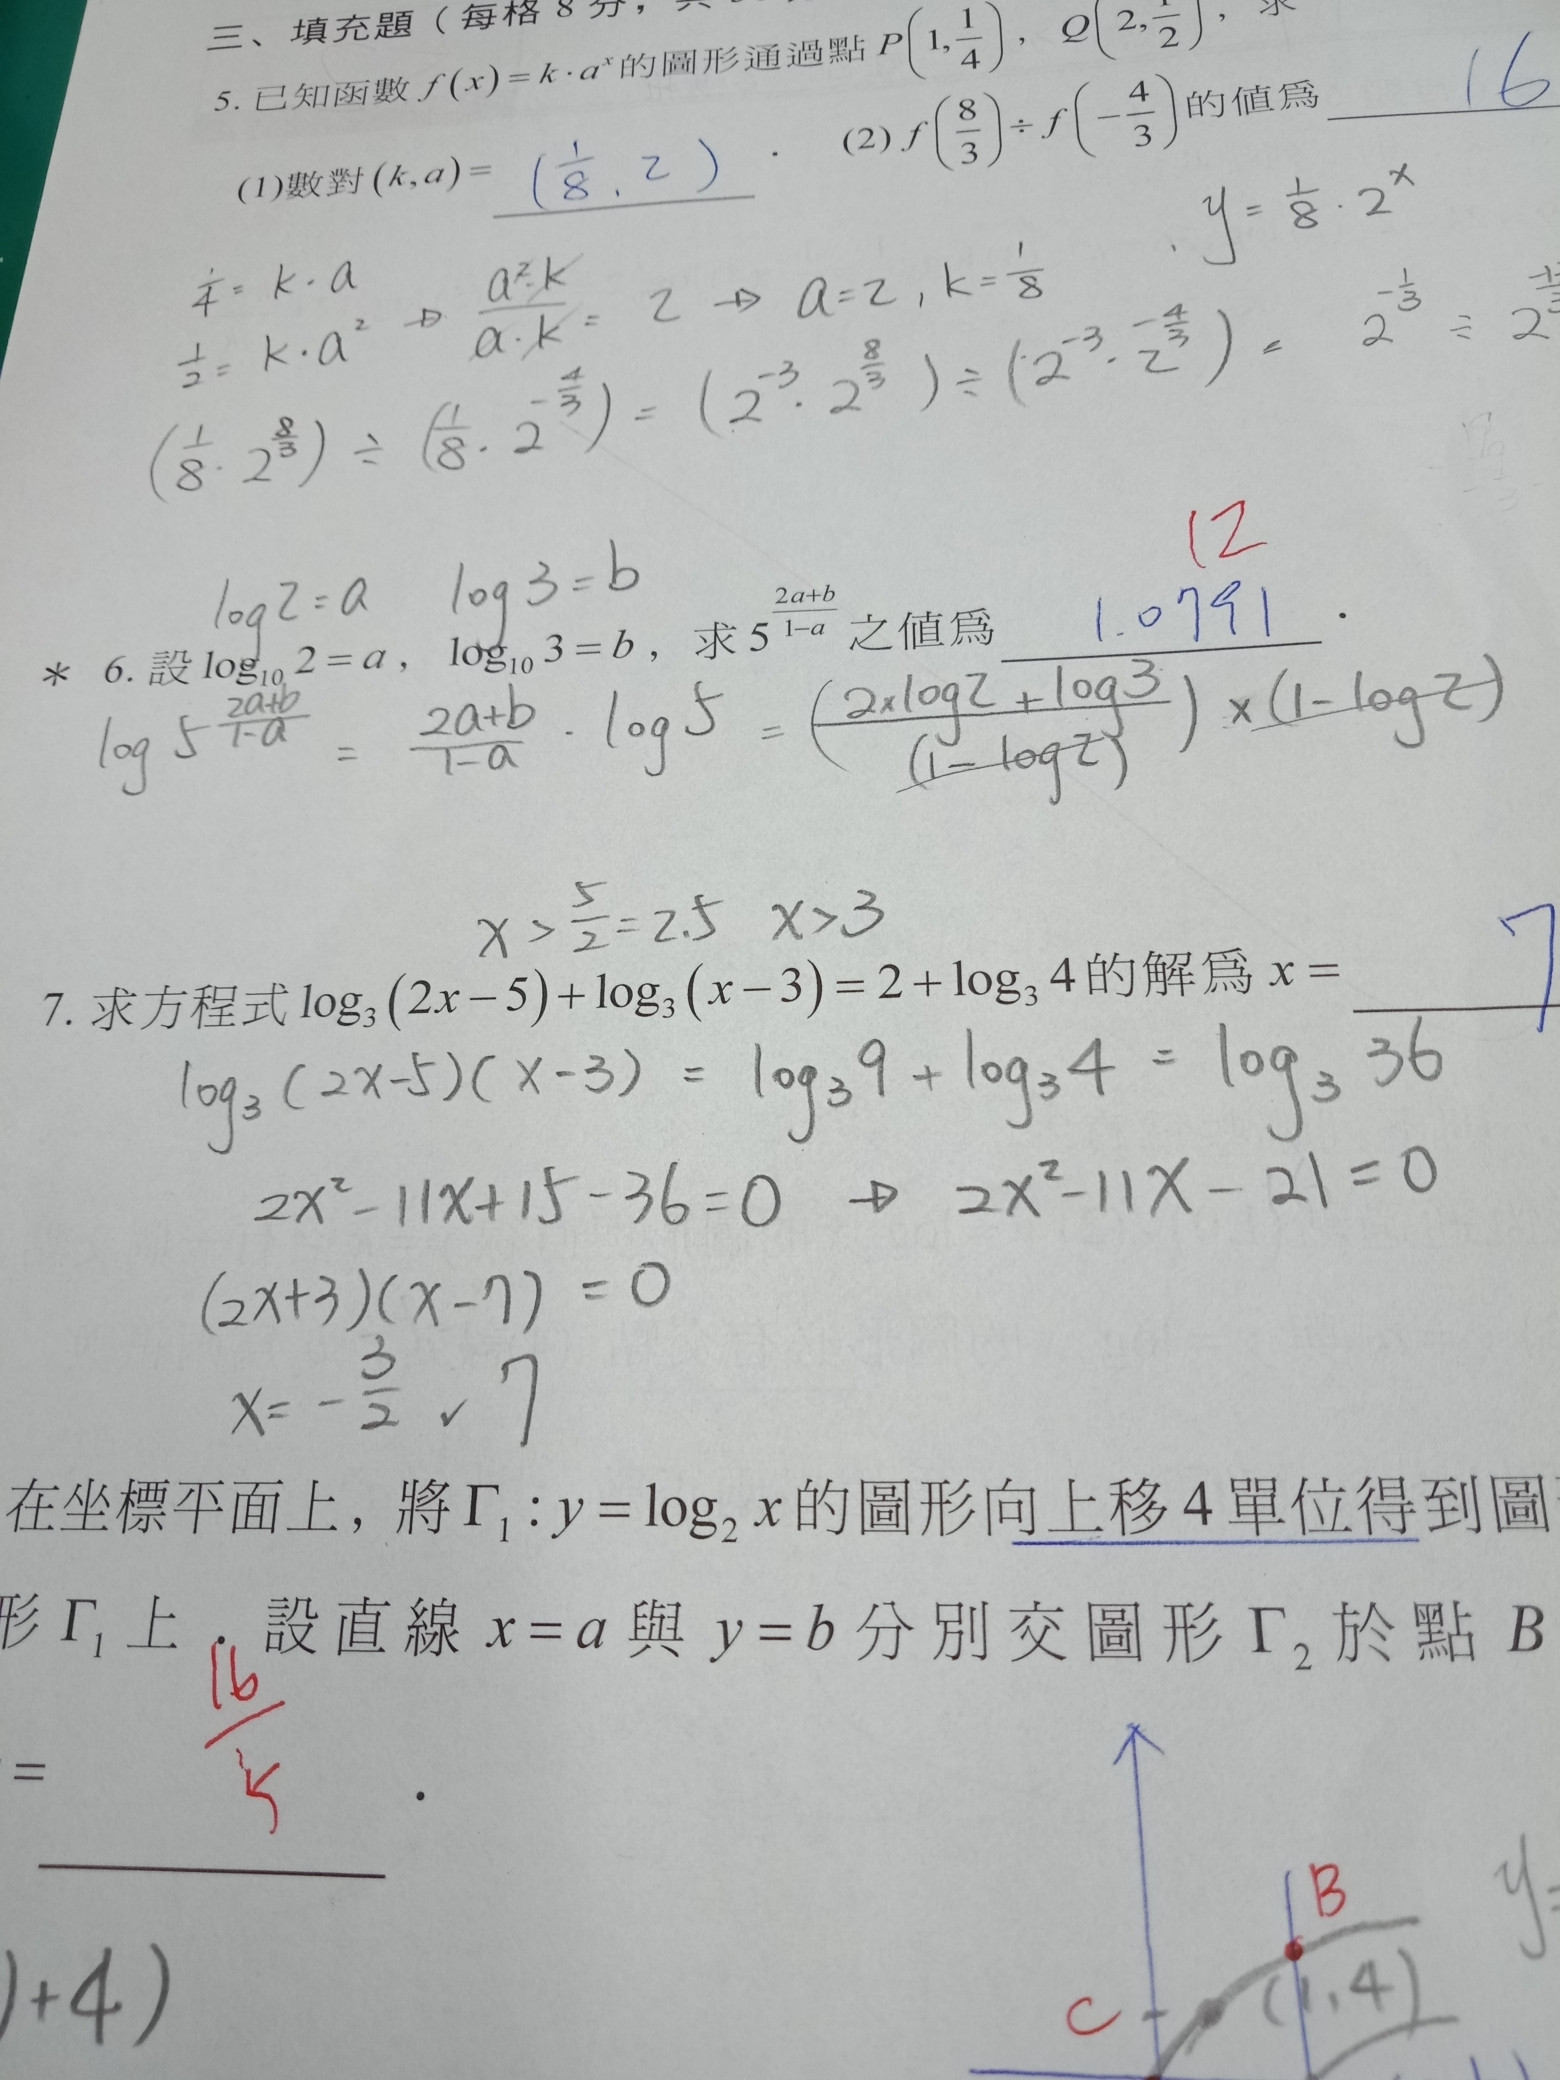 三、填充題（每格8分，
5. 已知函數 f(x) = k · a^x 的圖形通過點 P(1, 1/4)，Q(2, 1/2)，求
(1) 數對 (k, a) = (1/8, 2) . (2) f(8/3) ÷ f(-4/3) 的值為 16
y = 1/8 · 2^x
1/4 = k · a
1/2 = k · a^2 → (a^2 · k)/(a · k) = 2 → a = 2, k = 1/8
(1/8 · 2^(8/3)) ÷ (1/8 · 2^(-4/3)) = (2^-3 · 2^(8/3)) ÷ (2^-3 · 2^(-4/3)) = 2^(-1/3) ÷ 2
12
log2 = a log3 = b
* 6. 設 log₁₀ 2 = a，log₁₀ 3 = b，求 5^((2a+b)/(1-a)) 之值為 1.0791 .
log 5^((2a+b)/(1-a)) = (2a+b)/(1-a) · log5 = ((2×log2 + log3)/(1-log2)) × (1-log2)
x > 5/2 = 2.5 x > 3
7. 求方程式 log₃(2x-5) + log₃(x-3) = 2 + log₃ 4 的解為 x = 7
log₃ (2x-5)(x-3) = log₃9 + log₃4 = log₃ 36
2x² - 11x + 15 - 36 = 0 → 2x² - 11x - 21 = 0
(2x+3)(x-7) = 0
x = -3/2 ✓ 7
在坐標平面上，將 Γ₁ : y = log₂ x 的圖形向上移 4 單位得到圖
形 Γ₁ 上．設直線 x = a 與 y = b 分別交圖形 Γ₂ 於點 B
= 16/5 .
B
y=
(1,4)
C
)+4)